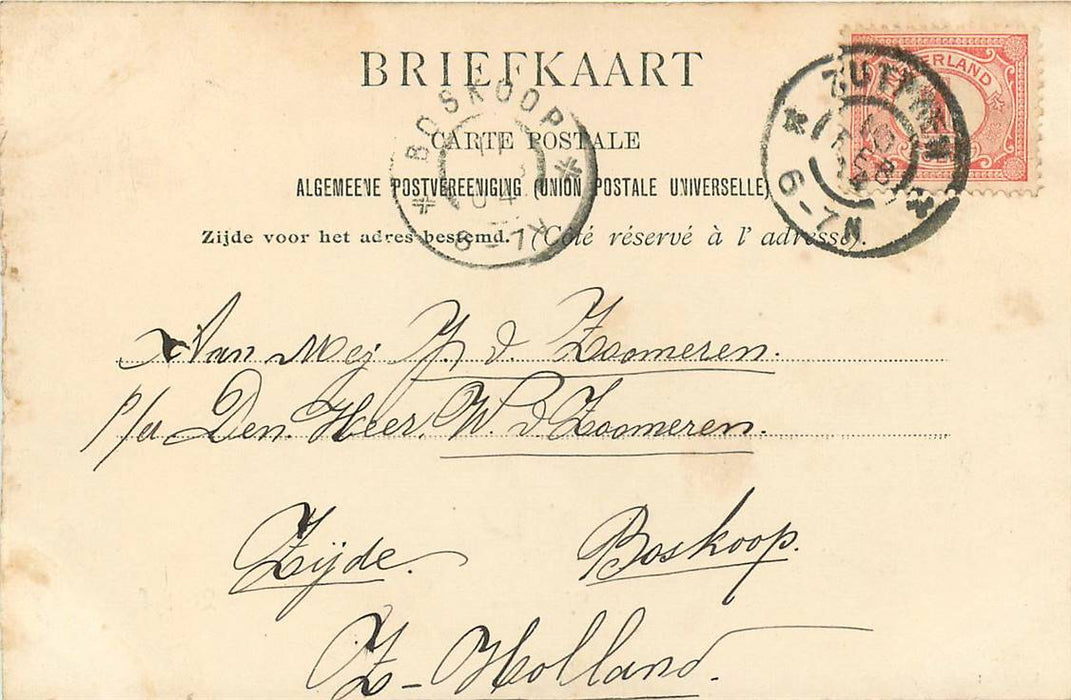 BRIEFKAART
CARTE POSTALE
ALGEMEENE POSTVEREENIGING (UNION POSTALE UNIVERSELLE)
Zijde voor het adres bestemd. (Côté réservé à l'adresse).
BOSKOOP
04
ZUTPHEN
10 FEB
6-7N
NEDERLAND
1
Aan Mej J. v. Zoomeren.
p/a Den Heer. W. v Zoomeren.
Zijde. Boskoop.
Z-Holland.